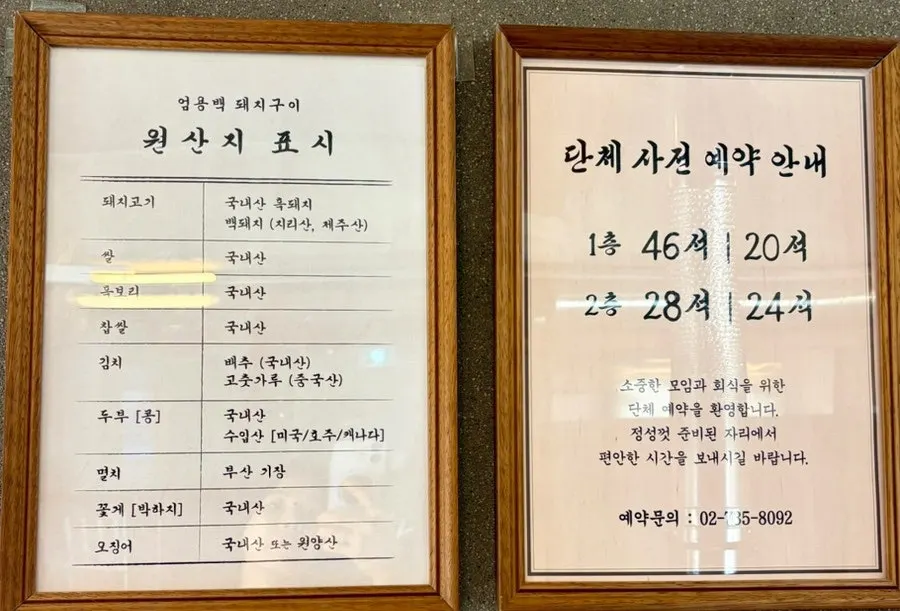 엄용백 돼지구이
원산지 표시
돼지고기 국내산 흑돼지
백돼지 (지리산, 제주산)
쌀 국내산
국내산
찹쌀 국내산
김치 배추 (국내산)
고춧가루 (중국산)
두부 [콩] 국내산
수입산 [미국/호주/캐나다]
멸치 부산 기장
꽃게 [박하지] 국내산
오징어 국내산 또는 원양산
단체 사전 예약 안내
1층 46석 | 20석
2층 28석 | 24석
소중한 모임과 회식을 위한
단체 예약을 환영합니다.
정성껏 준비된 자리에서
편안한 시간을 보내시길 바랍니다.
예약문의 : 02-735-8092